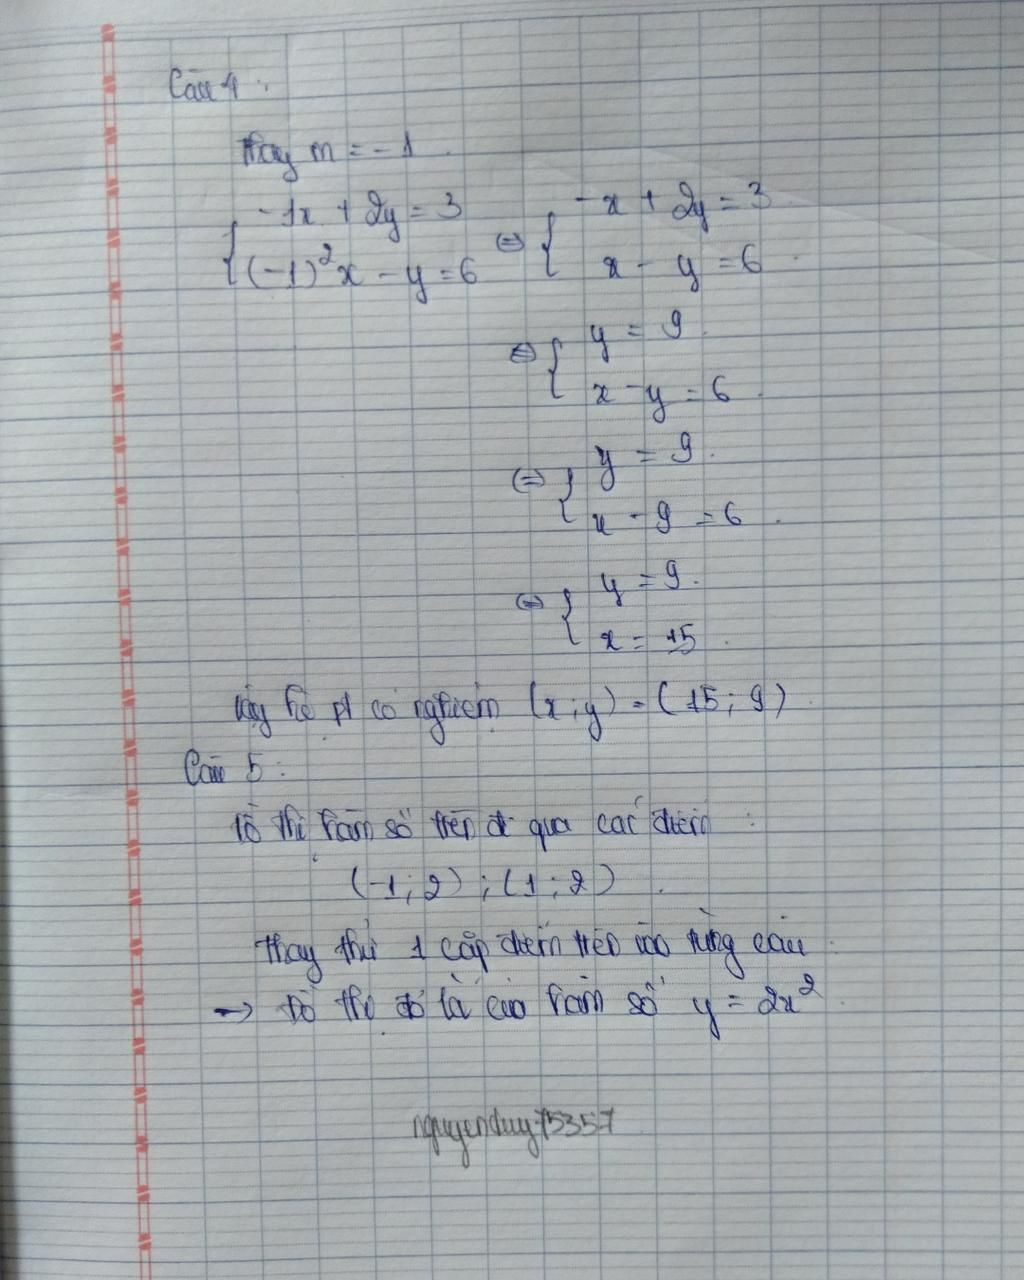 Câu 4 :
Thay m = - 1
{ -1x + 2y = 3 ⇔ { -x + 2y = 3
(-1)²x - y = 6 x - y = 6
⇔ { y = 9
x - y = 6
⇔ { y = 9
x - 9 = 6
⇔ { y = 9
x = 15
Vậy hệ pt có nghiệm (x ; y) = (15 ; 9)
Câu 5 :
Đồ thị hàm số trên đi qua các điểm :
(-1 ; 2) ; (1 ; 2)
Thay thử 1 cặp điểm trên vào từng câu
→ Đồ thị đó là của hàm số y = 2x²
nguyenduy75357